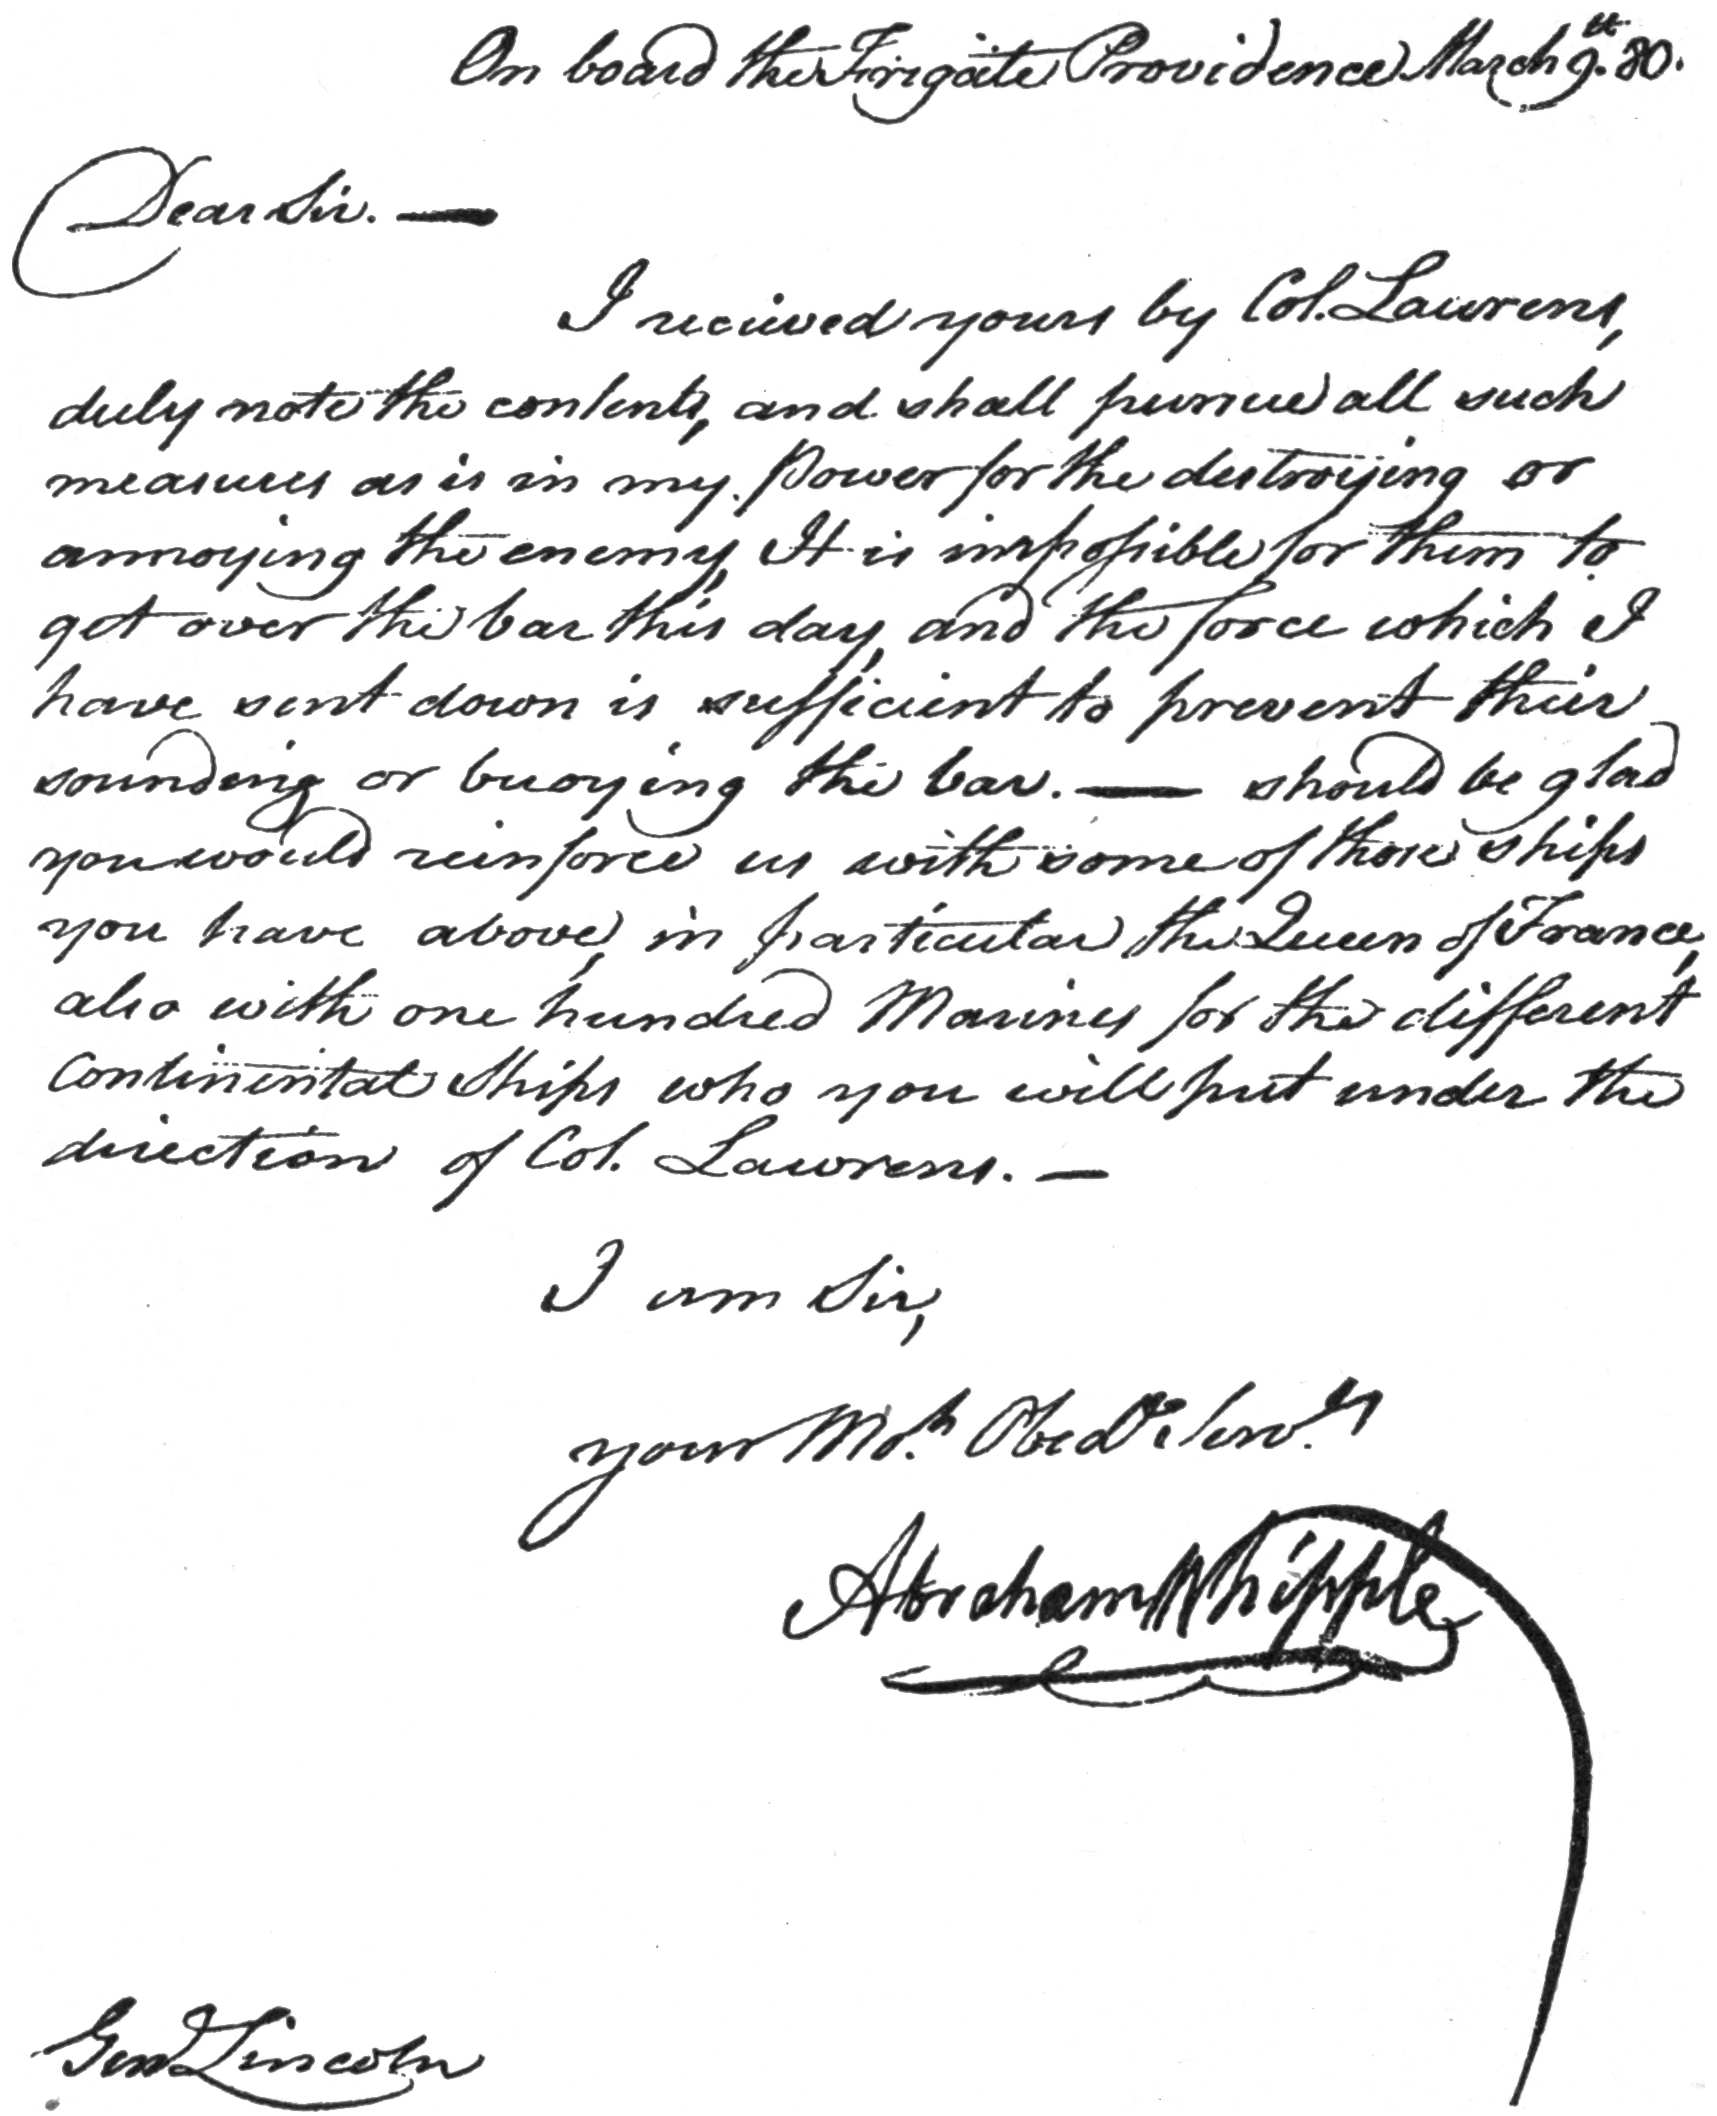 On board the Frigate Providence March 9.th 80.
Dear Sir. —
I recieved yours by Col. Lawrens,
duly note the contents, and shall pursue all such
measures as is in my Power for the destroying or
annoying the enemy, It is impossible for them to
get over the bar this day, and the force which I
have sent down is sufficient to prevent their
sounding or buoying the bar. — should be glad
you would reinforce us with some of those ships
you have above, in particular the Queen of France,
also with one hundred Marines for the different
Continental Ships who you will put under the
direction of Col. Lawrens. —
I am Sir,
your Mo.st Obedt Serv.t
Abraham Whipple
Genl Lincoln